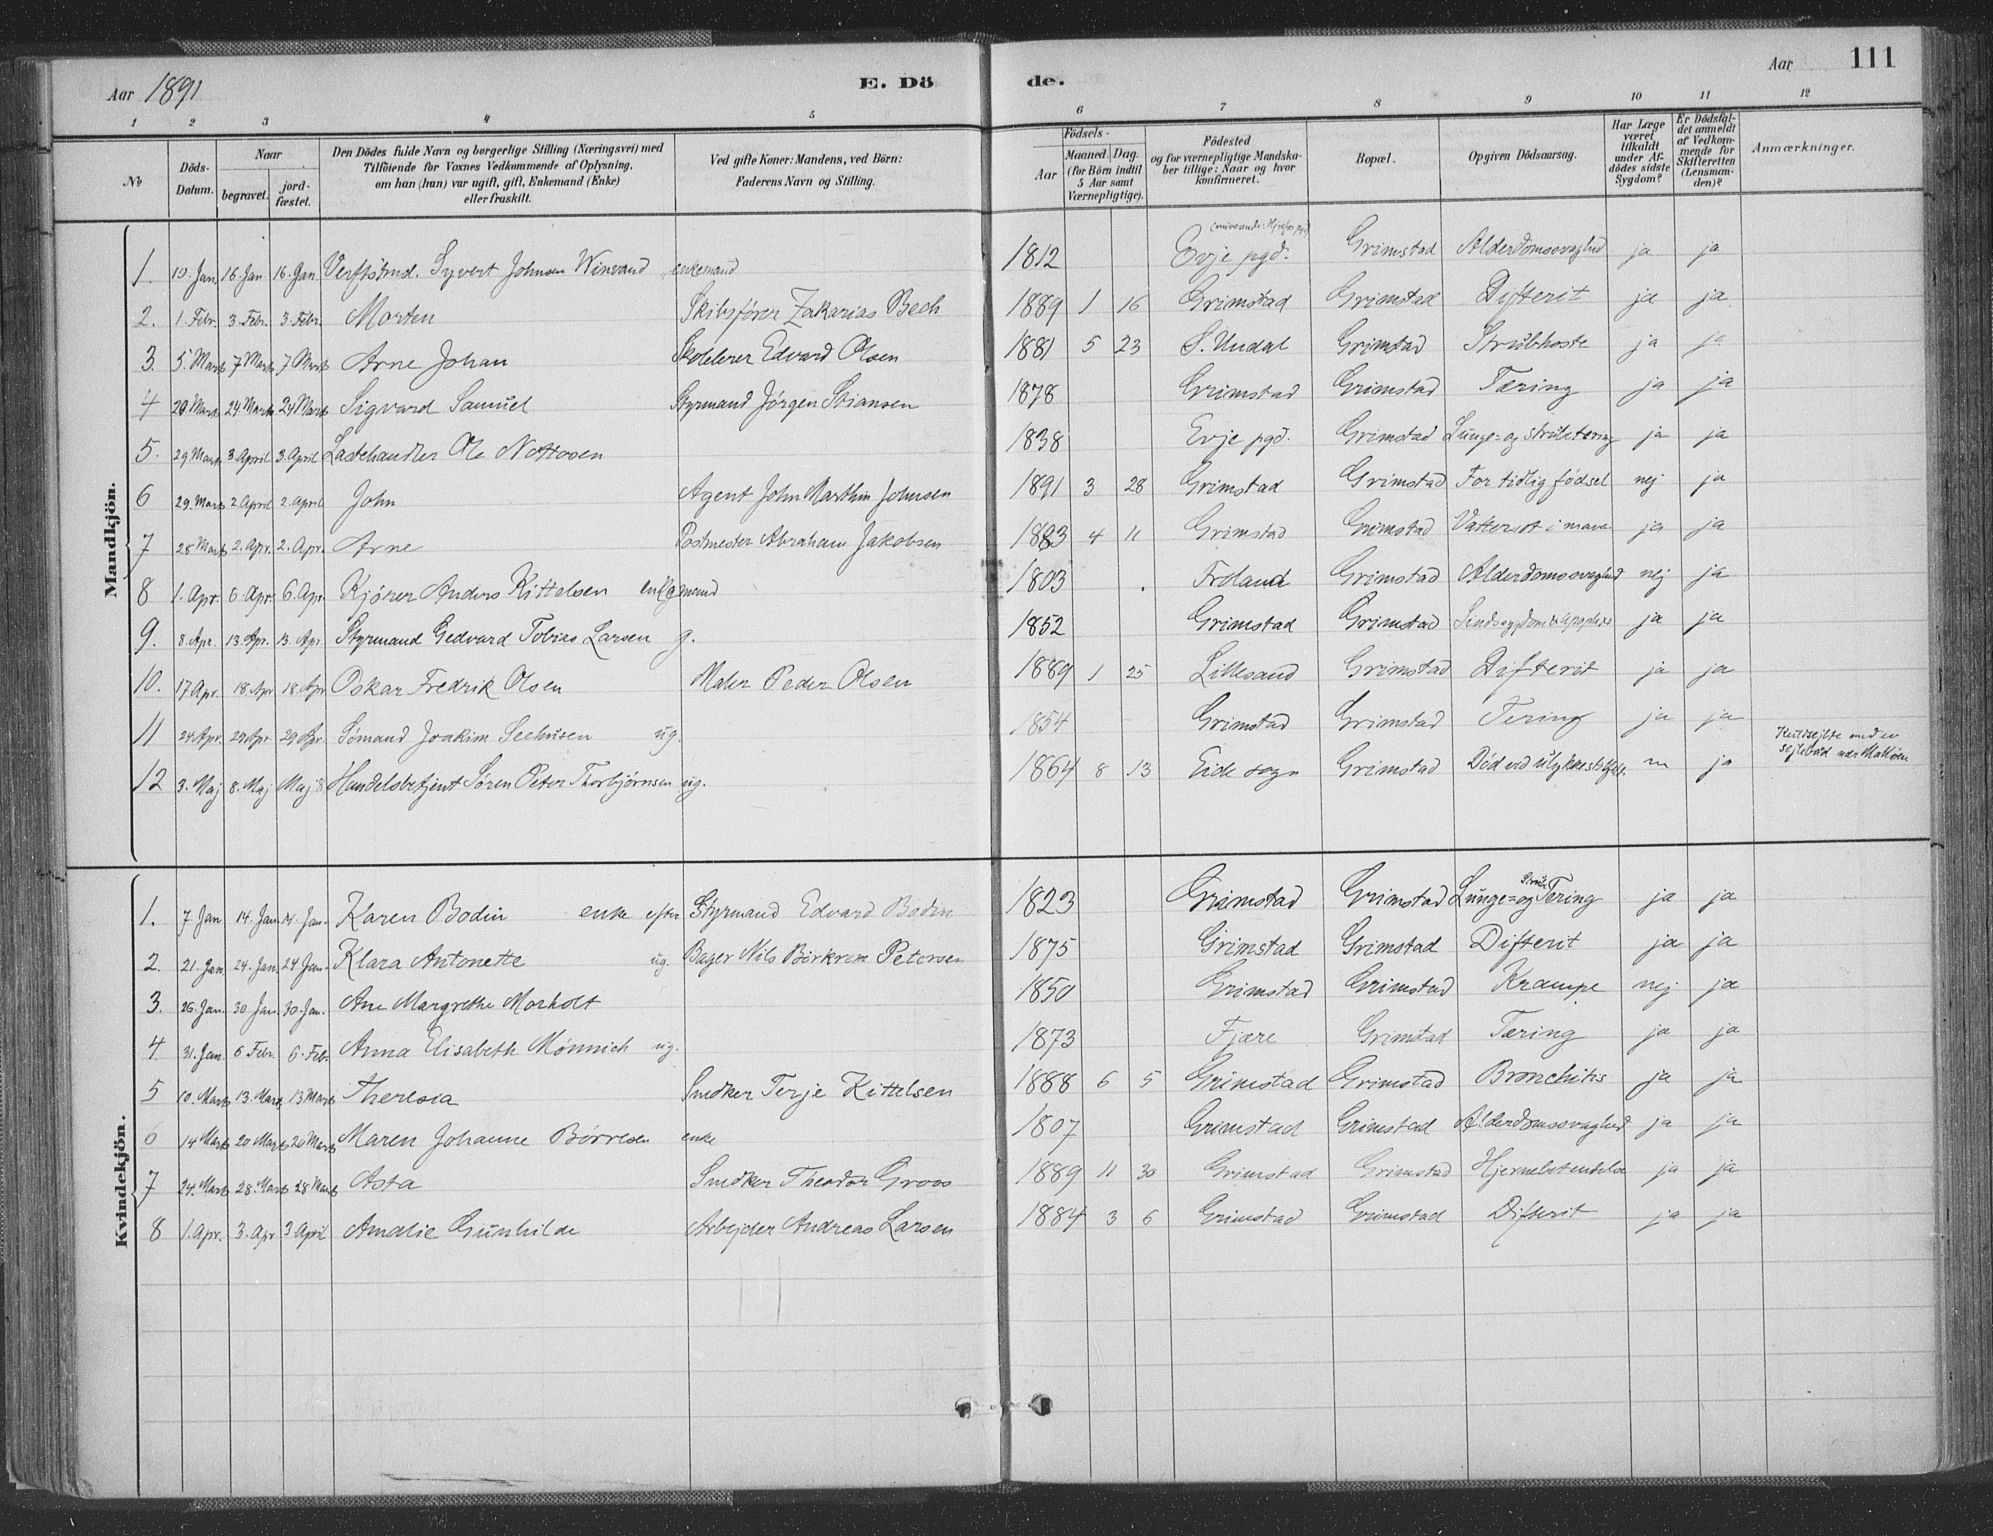 Aar 1891
E. Dö
de.
Aar
111
1 2 3 4 5 6 7 8 9 10 11 12
No
Döds-Datum.
Naar
begravet.
jord-fæstet.
Den Dödes fulde Navn og borgerlige Stilling (Næringsvei) med
Tilföiende for Voxnes Vedkommende af Oplysning,
om han (hun) var ugift, gift, Enkemand (Enke)
eller fraskilt.
Ved gifte Koner: Mandens, ved Börn:
Faderens Navn og Stilling.
Födsels-
Aar
Maaned. Dag.
(for Börn indtil
5 Aar samt
Værnepligtige).
Födested
og for værnepligtige Mandska-
ber tillige: Naar og hvor
konfirmeret.
Bopæl.
Opgiven Dödsaarsag.
Har Læge
været
tilkaldt
under Af-
dödes sidste
Sygdom?
Er Dödsfal-
det anmeldt
af Vedkom-
mende for
Skifteretten
(Lensman-
den)?
Anmærkninger.
Mandkjön.
1. 10. Jan. 16 Jan. 16. Jan. Syvert Johnsen Winvand enkemand 1812 Evje pgd. Grimstad Alderdomssvaghed ja ja
2. 1. Febr. 3. Febr. 3. Febr. Morten Skibsfører Zakarias Bech 1889 1 16 Grimstad Grimstad Difterit ja ja
3. 5. Marts 7 Marts 7 Marts Arne Johan Edvard Olsen 1881 5 23 S. Undal Grimstad Strubhoste ja ja
4 20 Marts 24 Marts 24 Marts Sigvard Samuel Styrmand Jørgen Stiansen 1878 Grimstad Grimstad Tæring ja ja
5. 29 Marts 3 April 3. April Ole Nottosen 1838 Evje pgd. Grimstad Lunge- og strubetæring ja ja
6 29. Marts 2. April 2. April John Agent John Marthin Johnsen 1891 3 28 Grimstad Grimstad For tidlig fødsel nej ja
7 28 Marts 2. Apr. 2. Apr. Arne Postmester Abraham Jakobsen 1883 4 11 Grimstad Grimstad Vattersot i mave ja ja
8 1. Apr. 6. Apr. 6. Apr. Kjører Anders Kittelsen enkemand 1803 Froland Grimstad Alderdomssvaghed nej ja
9. 8. Apr. 13. Apr. 13. Apr. Styrmand Gedvard Tobias Larsen g. 1852 Grimstad Grimstad ja ja
10. 17 Apr. 18. Apr 18. Apr Oskar Fredrik Olsen Maler Peder Olsen 1889 1 25 Lillesand Grimstad Difterit ja ja
11 24 Apr. 29 Apr. 29 Apr. Sømand Joakim Seehusen ug. 1854 Grimstad Grimstad Tering ja ja
12 3. Maj 8. Maj Maj 8 Handelsbetjent Søren Peter Thorbjørnsen ug. 1864 8 13 Eide sogn Grimstad Død ved ulykkestilfælde ja
sejlebåd nær Malløen
Kvindekjön.
1. 7 Jan 14. Jan. 14. Jan. Karen Bodin enke efter Styrmand Edvard Bodin 1823 Grimstad Grimstad Lunge- og Strube Tering ja ja
2. 21. Jan. 24. Jan. 24 Jan. Klara Antonette ug. Bager Nils Börkrem Petersen 1875 Grimstad Grimstad Difterit ja ja
3. 26. Jan. 30 Jan. 30 Jan. Ane Margrethe Morholt 1850 Grimstad Grimstad Krampe nej ja
4. 31. Jan. 6 Febr. 6. Febr. Anna Elisabeth Mönnich ug. 1873 Fjære Grimstad Tæring ja ja
5 10. Marts 13. Marts 13 Marts Theresia Snedker Terje Kittelsen 1888 6 5 Grimstad Grimstad Bronchitis ja ja
6 14 Marts 20 Marts 20 Marts Maren Johanne Börresen enke 1807 Grimstad Grimstad Alderdomssvaghed ja ja
7 24. Marts 28. Marts 28 Marts Asta Snedker Theodor Groos 1889 11 30 Grimstad Grimstad Hjernebetændelse ja ja
8 1. Apr. 3. Apr 3 April Amalie Gunhilde Arbejder Andreas Larsen 1884 3 6 Grimstad Grimstad Difterit ja ja